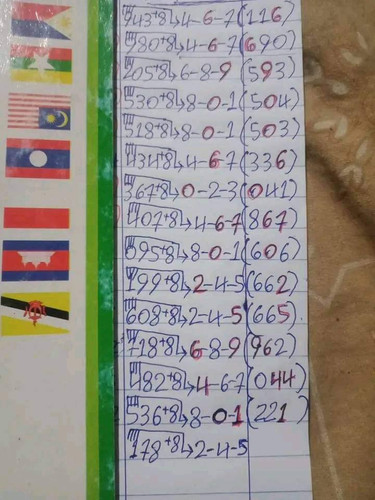 943+8→4-6-7(116)
980+8→4-6-7(690)
205+8→6-8-9(593)
530+8→8-0-1(504)
518+8→8-0-1(503)
434+8→4-6-7(336)
367+8→0-2-3(041)
407+8→4-6-7(867)
695+8→8-0-1(606)
199+8→2-4-5(662)
608+8→2-4-5(665)
718+8→6-8-9(962)
482+8→4-6-7(044)
536+8→8-0-1(221)
178+8→2-4-5